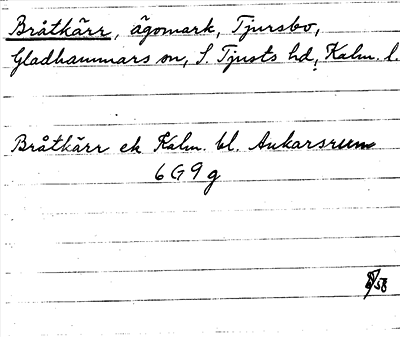 Bråtkärr, ägomark, Tjursbo,
Gladhammars sn, S. Tjusts hd, Kalm. l.
Bråtkärr ek Kalm. bl. Ankarsrum
6G9g